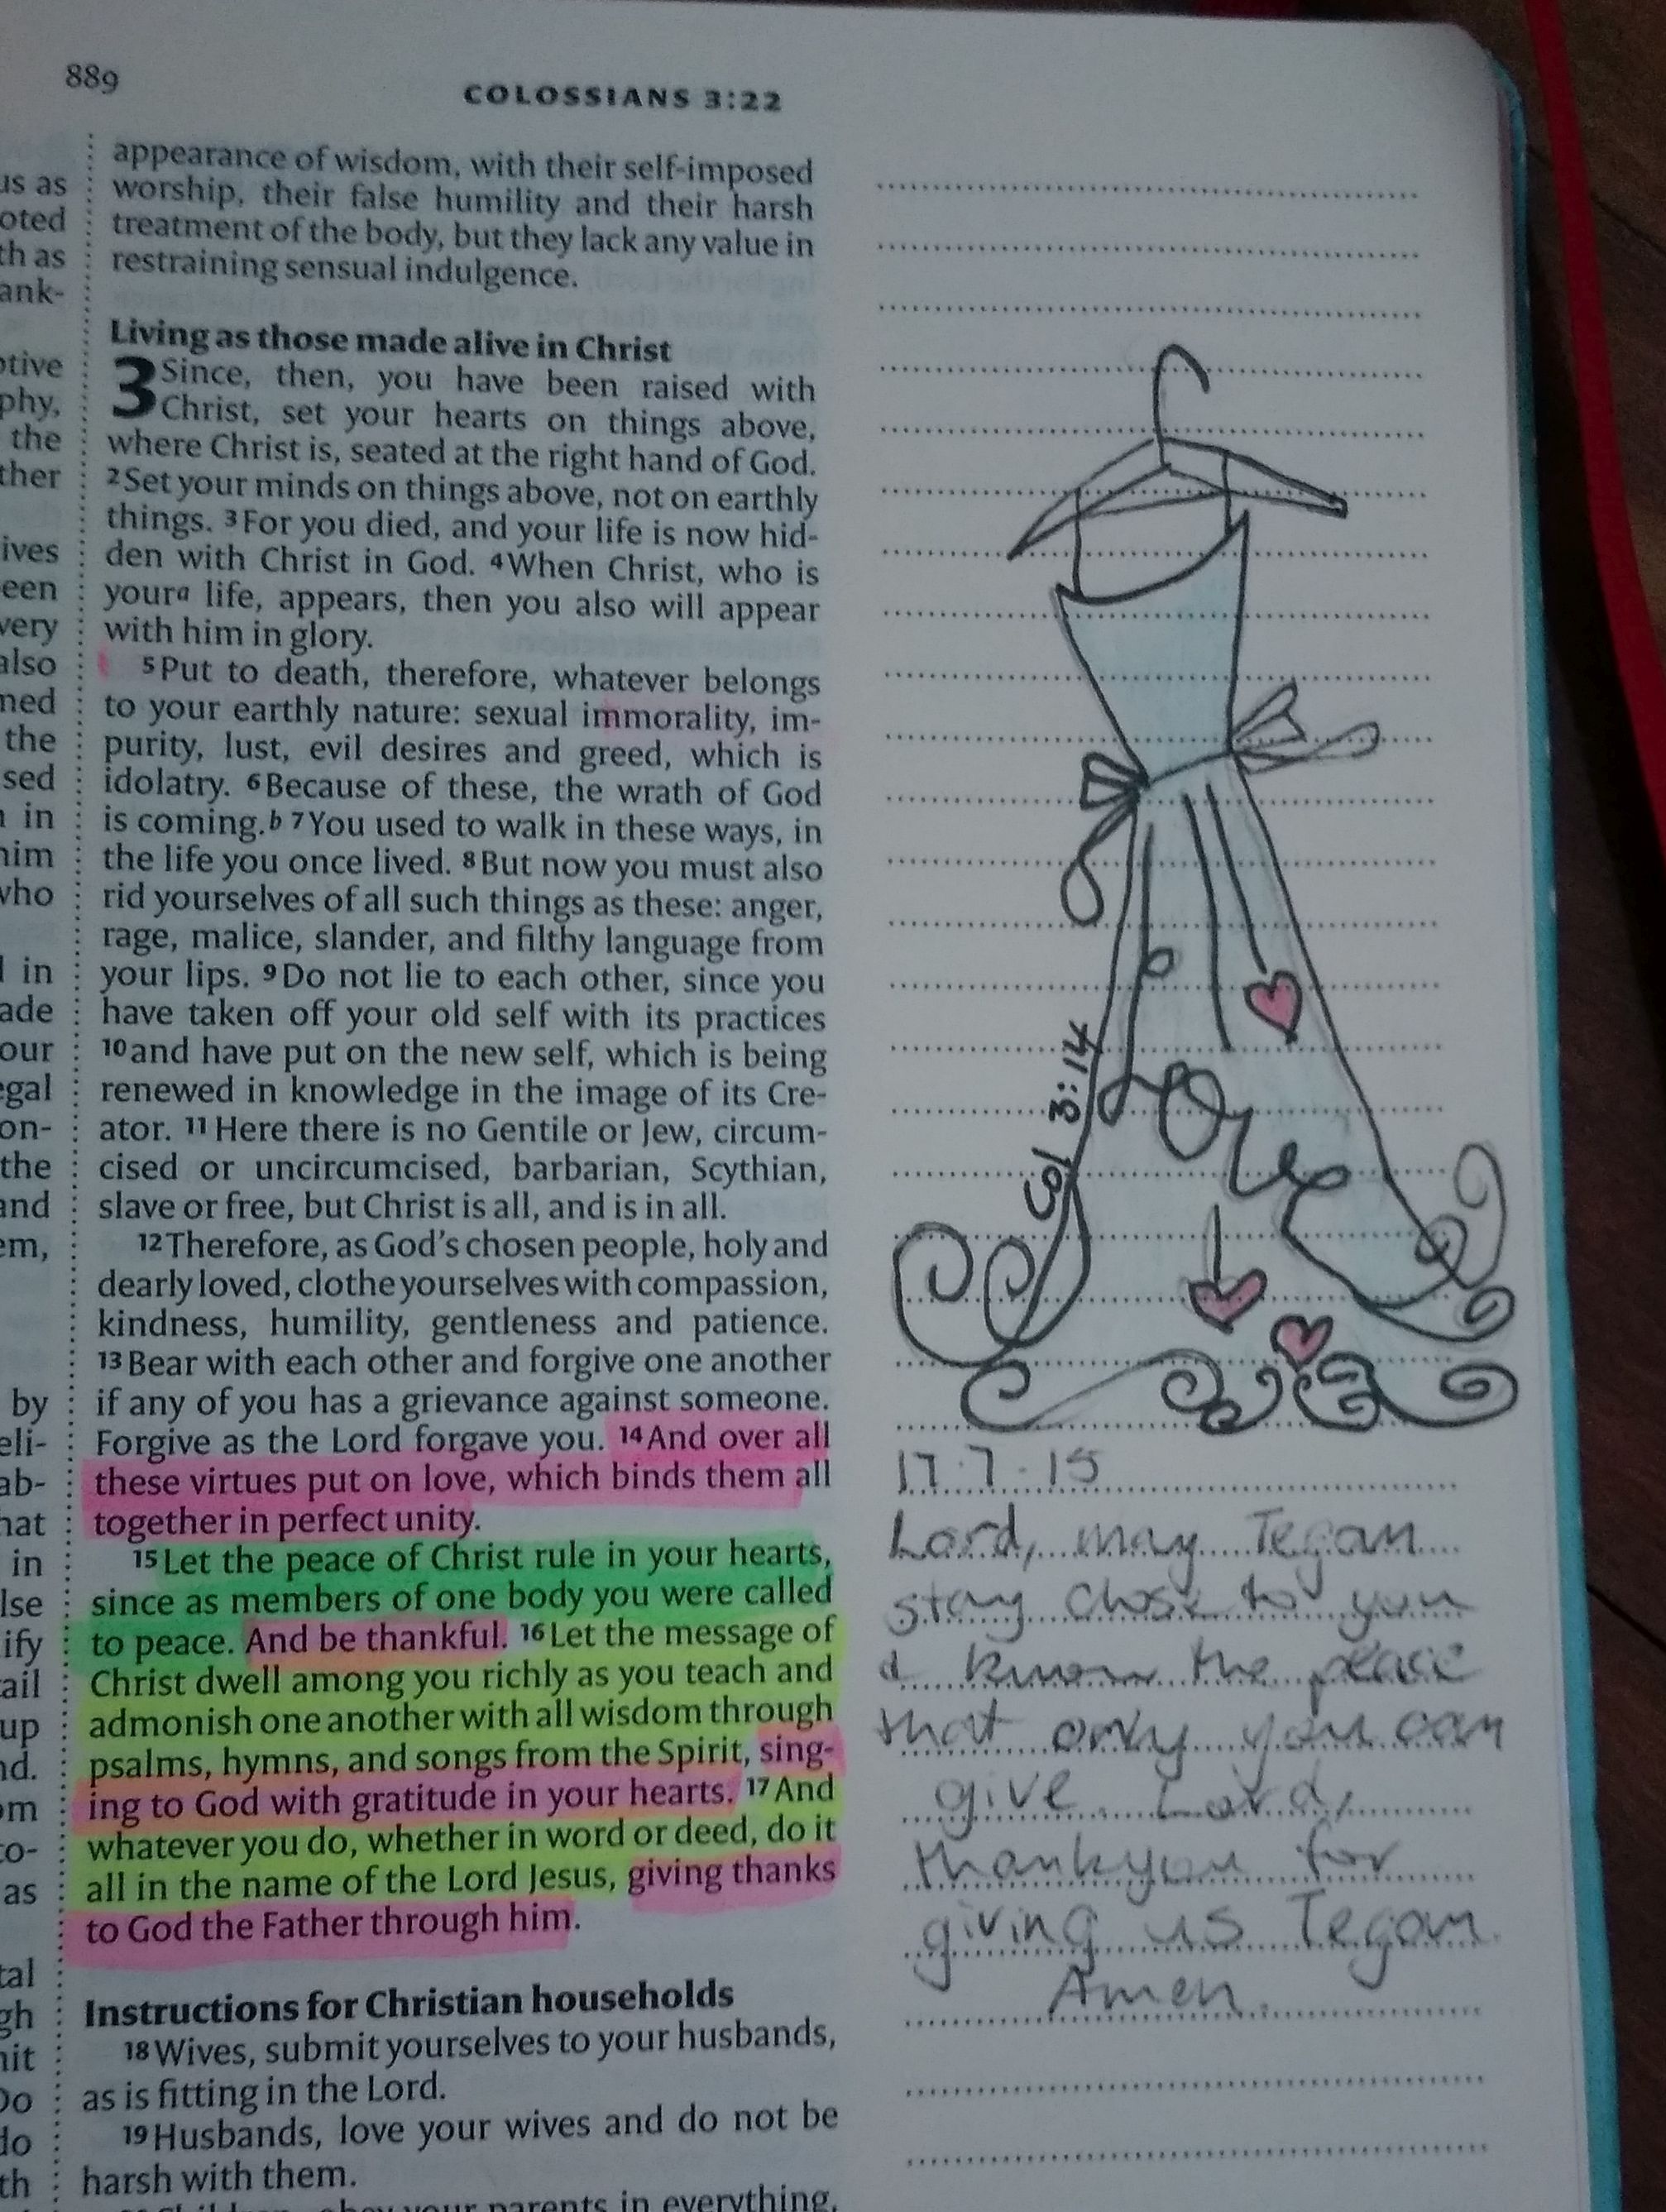 889
COLOSSIANS 3:22
us as
oted
th as
ank-
ptive
phy,
the
ther
ives
een
very
also
ned
the
sed
in
him
who
in
ade
our
egal
on-
the
and
em,
by
eli-
ab-
hat
in
lse
ify
ail
up
nd.
om
to-
as
tal
gh
nit
Do
do
th
appearance of wisdom, with their self-imposed
worship, their false humility and their harsh
treatment of the body, but they lack any value in
restraining sensual indulgence.
Living as those made alive in Christ
3 Since, then, you have been raised with
Christ, set your hearts on things above,
where Christ is, seated at the right hand of God.
2 Set your minds on things above, not on earthly
things. 3 For you died, and your life is now hid-
den with Christ in God. 4 When Christ, who is
your a life, appears, then you also will appear
with him in glory.
5 Put to death, therefore, whatever belongs
to your earthly nature: sexual immorality, im-
purity, lust, evil desires and greed, which is
idolatry. 6 Because of these, the wrath of God
is coming. b 7 You used to walk in these ways, in
the life you once lived. 8 But now you must also
rid yourselves of all such things as these: anger,
rage, malice, slander, and filthy language from
your lips. 9 Do not lie to each other, since you
have taken off your old self with its practices
10 and have put on the new self, which is being
renewed in knowledge in the image of its Cre-
ator. 11 Here there is no Gentile or Jew, circum-
cised or uncircumcised, barbarian, Scythian,
slave or free, but Christ is all, and is in all.
12 Therefore, as God's chosen people, holy and
dearly loved, clothe yourselves with compassion,
kindness, humility, gentleness and patience.
13 Bear with each other and forgive one another
if any of you has a grievance against someone.
Forgive as the Lord forgave you. 14 And over all
these virtues put on love, which binds them all
together in perfect unity.
15 Let the peace of Christ rule in your hearts,
since as members of one body you were called
to peace. And be thankful. 16 Let the message of
Christ dwell among you richly as you teach and
admonish one another with all wisdom through
psalms, hymns, and songs from the Spirit, sing-
ing to God with gratitude in your hearts. 17 And
whatever you do, whether in word or deed, do it
all in the name of the Lord Jesus, giving thanks
to God the Father through him.
Instructions for Christian households
18 Wives, submit yourselves to your husbands,
as is fitting in the Lord.
19 Husbands, love your wives and do not be
harsh with them.
obey your parents in everything,
Col 3:14
Love
17.7.15
Lord, may Tegan
stay close to you
& know the peace
that only you can
give Lord,
thankyou for
giving us Tegan
Amen.